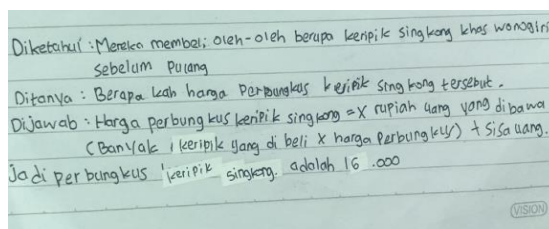 Diketahui : Mereka membeli oleh-oleh berupa keripik singkong khas wonogiri
sebelum pulang
Ditanya : Berapa kah harga Perbungkus keripik singkong tersebut.
Dijawab : Harga perbungkus keripik singkong = X rupiah uang yang dibawa
(Banyak keripik yang di beli X harga Perbungkus) + Sisa uang.
Jadi perbungkus keripik singkong. adalah 16.000
VISION